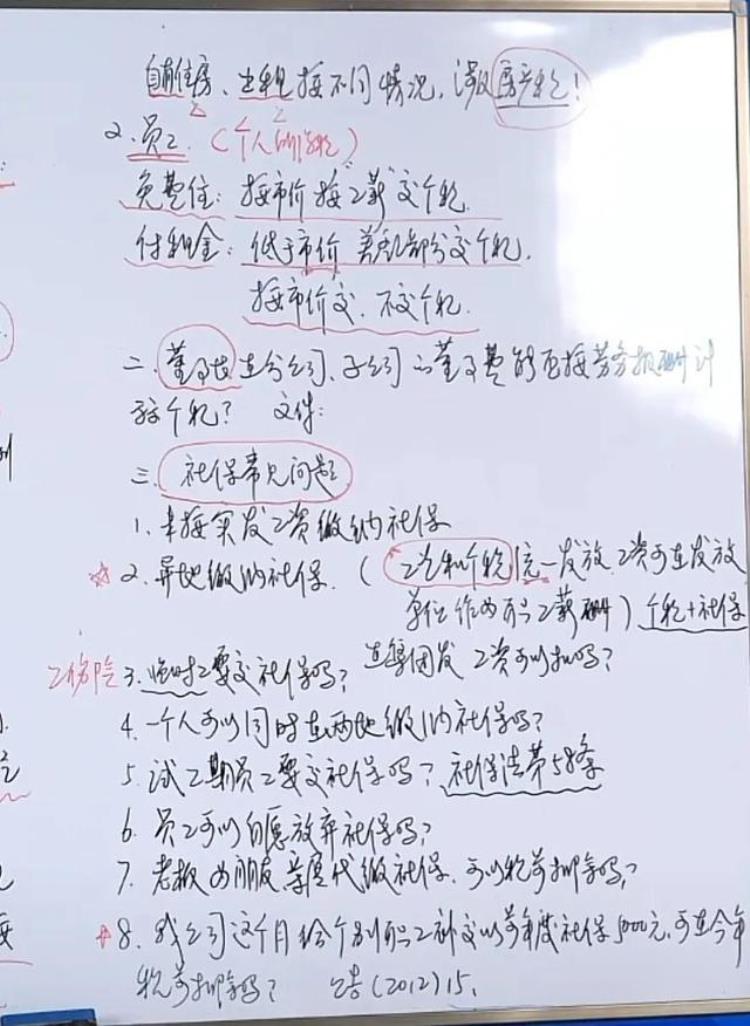 自有住房、出租按不同情况,涉及房产税!
2. 员工 (个人所得税)
免费住: 按市价按“工薪”交个税.
付租金: 低于市价 差额部分交个税.
按市价交. 不交个税.
二. 董事长在分公司、子公司的董事费能否按劳务报酬计
交个税? 文件:
三. 社保常见问题
1. 未按实发工资缴纳社保
☆2. 异地缴纳社保. (工资和个税统一发放. 工资可在发放
单位作为职工薪酬) 个税+社保
工伤险 3. 临时工要交社保吗? 在集团发 工资可以扣吗?
4. 一个人可以同时在两地缴纳社保吗?
5. 试工期员工要交社保吗? 社保法第58条
6. 员工可以自愿放弃社保吗?
7. 老板为朋友、亲属代缴社保. 可以税前扣除吗?
☆8. 我公司这个月给个别职工补交以前年度社保5000元. 可在今年
税前扣除吗? 公告(2012)15.